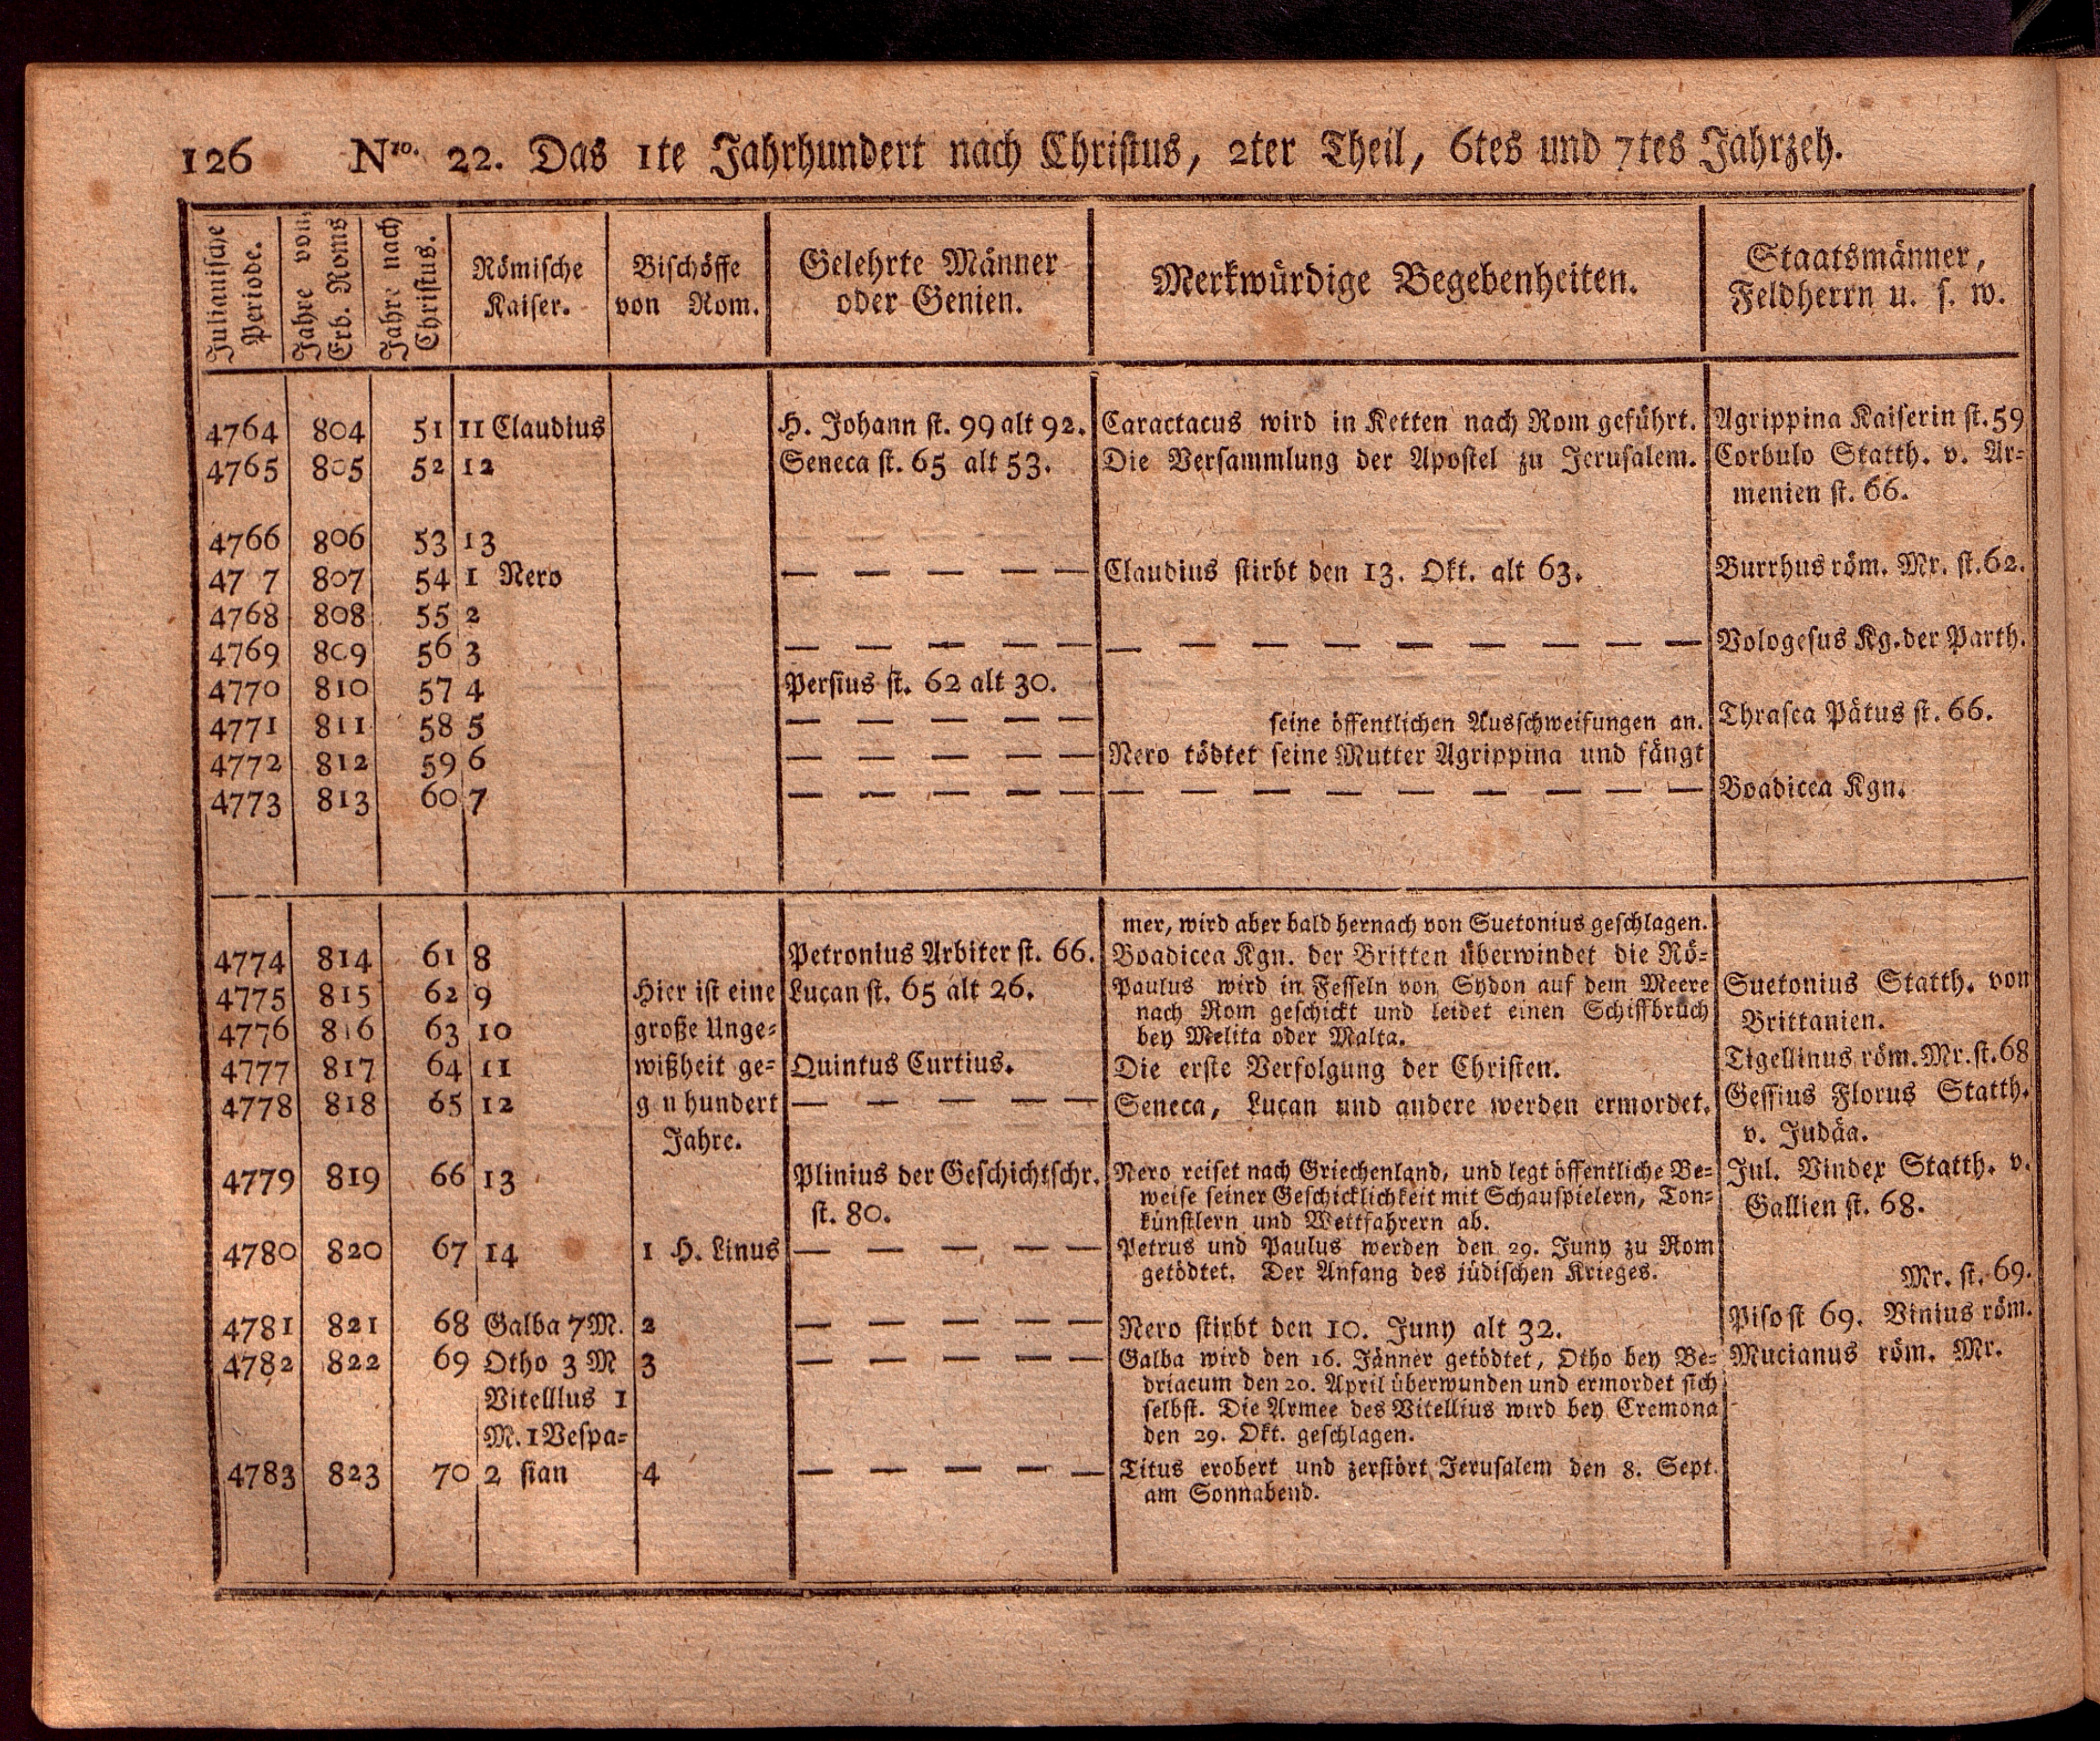 126 Nro. 22. Das 1te Jahrhundert nach Christus, 2ter Theil, 6tes und 7tes Jahrzeh.
Julianische Periode.
Jahre von Erb. Roms
Jahre nach Christus.
Römische Kaiser.
Bischöffe von Rom.
Gelehrte Männer oder Genien.
Merkwürdige Begebenheiten.
Staatsmänner, Feldherrn u. s. w.
4764 804 51 11 Claudius H. Johann st. 99 alt 92. Caractacus wird in Ketten nach Rom geführt. Agrippina Kaiserin st. 59
4765 805 52 12 Seneca st. 65 alt 53. Die Versammlung der Apostel zu Jerusalem. Corbulo Statth. v. Ar-
menien st. 66.
4766 806 53 13
47 7 807 54 1 Nero — — — — — Claudius stirbt den 13. Okt. alt 63. Burrhus röm. Mr. st. 62.
4768 808 55 2
4769 809 56 3 — — — — — — — — — — — — — — Vologesus Kg. der Parth.
4770 810 57 4 Persius st. 62 alt 30.
4771 811 58 5 — — — — — seine öffentlichen Ausschweifungen an. Thrasea Pätus st. 66.
4772 812 59 6 — — — — — Nero tödtet seine Mutter Agrippina und fängt
4773 813 60 7 — — — — — — — — — — — — — — Boadicea Kgn.
mer, wird aber bald hernach von Suetonius geschlagen.
4774 814 61 8 Petronius Arbiter st. 66. Boadicea Kgn. der Britten überwindet die Rö-
4775 815 62 9 Hier ist eine Lucan st. 65 alt 26. Paulus wird in Fesseln von Sydon auf dem Meere Suetonius Statth. von
nach Rom geschickt und leidet einen Schiffbruch Brittanien.
4776 816 63 10 große Unge- bey Melita oder Malta.
4777 817 64 11 wißheit ge- Quintus Curtius. Die erste Verfolgung der Christen. Tigellinus röm. Mr. st. 68
4778 818 65 12 g n hundert — — — — — Seneca, Lucan und andere werden ermordet. Gessius Florus Statth.
Jahre. v. Judäa.
4779 819 66 13 Plinius der Geschichtschr. Nero reiset nach Griechenland, und legt öffentliche Be- Jul. Vindex Statth. v.
weise seiner Geschicklichkeit mit Schauspielern, Ton-
st. 80. künstlern und Wettfahrern ab. Gallien st. 68.
4780 820 67 14 1 H. Linus — — — — — Petrus und Paulus werden den 29. Juny zu Rom
getödtet. Der Anfang des jüdischen Krieges. Mr. st. 69.
4781 821 68 Galba 7 M. 2 — — — — — Nero stirbt den 10. Juny alt 32. Piso st 69. Vinius röm.
4782 822 69 Otho 3 M 3 — — — — — Galba wird den 16. Jänner getödtet, Otho bey Be- Mucianus röm. Mr.
driacum den 20. April überwunden und ermordet sich
Vitelllus 1 selbst. Die Armee des Vitellius wird bey Cremona
M. 1 Vespa- den 29. Okt. geschlagen.
4783 823 70 2 sian 4 — — — — — Titus erobert und zerstört Jerusalem den 8. Sept.
am Sonnabend.